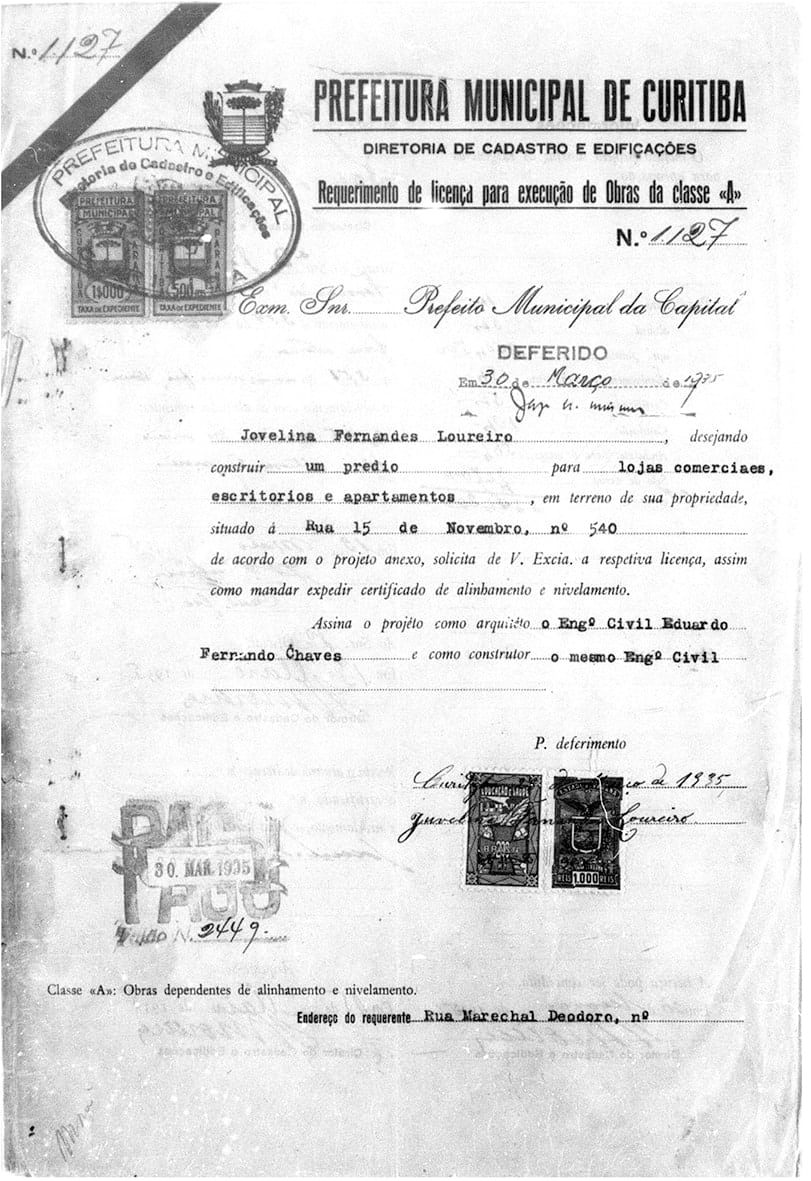 N.º 1127
PREFEITURA MUNICIPAL DE CURITIBA
DIRETORIA DE CADASTRO E EDIFICAÇÕES
Requerimento de licença para execução de Obras da classe «A»
N.º 1127
PREFEITURA MUNICIPAL
Diretoria de Cadastro e Edificações
PREFEITURA MUNICIPAL
CURITIBA PARANÁ
1$000
TAXA DE EXPEDIENTE
PREFEITURA MUNICIPAL
CURITIBA PARANÁ
500
TAXA DE EXPEDIENTE
Exm. Snr. Prefeito Municipal da Capital
DEFERIDO
Em 30 de Março de 1935
Jovelina Fernandes Loureiro, desejando
construir um predio para lojas comerciaes,
escritorios e apartamentos, em terreno de sua propriedade,
situado á Rua 15 de Novembro, nº 540
de acordo com o projeto anexo, solicita de V. Excia. a respetiva licença, assim
como mandar expedir certificado de alinhamento e nivelamento.
Assina o projéto como arquitéto o Engº Civil Eduardo
Fernando Chaves e como construtor o mesmo Engº Civil
P. deferimento
de 1935
Loureiro
EDUCAÇÃO E SAUDE
BRASIL
REIS 1.000 REIS
PAGO
30. MAR. 1935
PAGO
N. 2449
Classe «A»: Obras dependentes de alinhamento e nivelamento.
Endereço do requerente Rua Marechal Deodoro, nº